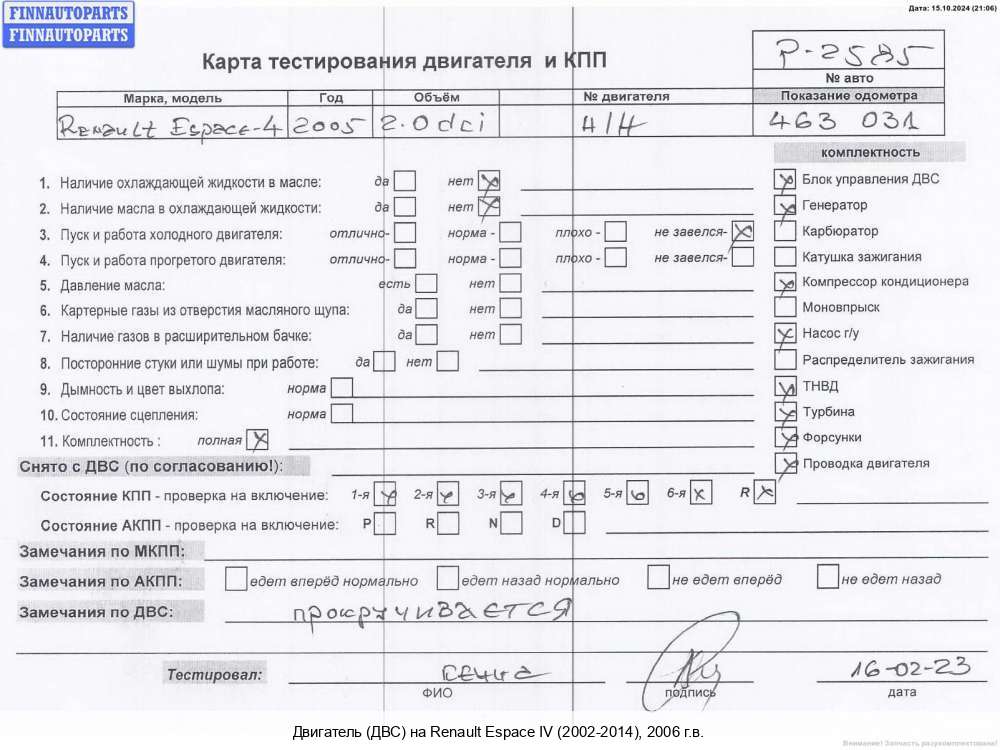 FINNAUTOPARTS
FINNAUTOPARTS
Дата: 15.10.2024 (21:06)
Карта тестирования двигателя и КПП
P-2585
№ авто
Марка, модель Год Объём № двигателя Показание одометра
Renault Espace-4 2005 2.0 dci 463 031
комплектность
1. Наличие охлаждающей жидкости в масле: да нет
2. Наличие масла в охлаждающей жидкости: да нет
3. Пуск и работа холодного двигателя: отлично- норма - плохо - не завелся-
4. Пуск и работа прогретого двигателя: отлично- норма - плохо - не завелся-
5. Давление масла: есть нет
6. Картерные газы из отверстия масляного щупа: да нет
7. Наличие газов в расширительном бачке: да нет
8. Посторонние стуки или шумы при работе: да нет
9. Дымность и цвет выхлопа: норма
10. Состояние сцепления: норма
11. Комплектность : полная
Блок управления ДВС
Генератор
Карбюратор
Катушка зажигания
Компрессор кондиционера
Моновпрыск
Насос г/у
Распределитель зажигания
ТНВД
Турбина
Форсунки
Проводка двигателя
Снято с ДВС (по согласованию!):
Состояние КПП - проверка на включение: 1-я 2-я 3-я 4-я 5-я 6-я R
Состояние АКПП - проверка на включение: P R N D
Замечания по МКПП:
Замечания по АКПП: едет вперёд нормально едет назад нормально не едет вперёд не едет назад
Замечания по ДВС: прокручивается
Тестировал: 16-02-23
ФИО подпись дата
Двигатель (ДВС) на Renault Espace IV (2002-2014), 2006 г.в.
Внимание! Запчасть разукомплектована!